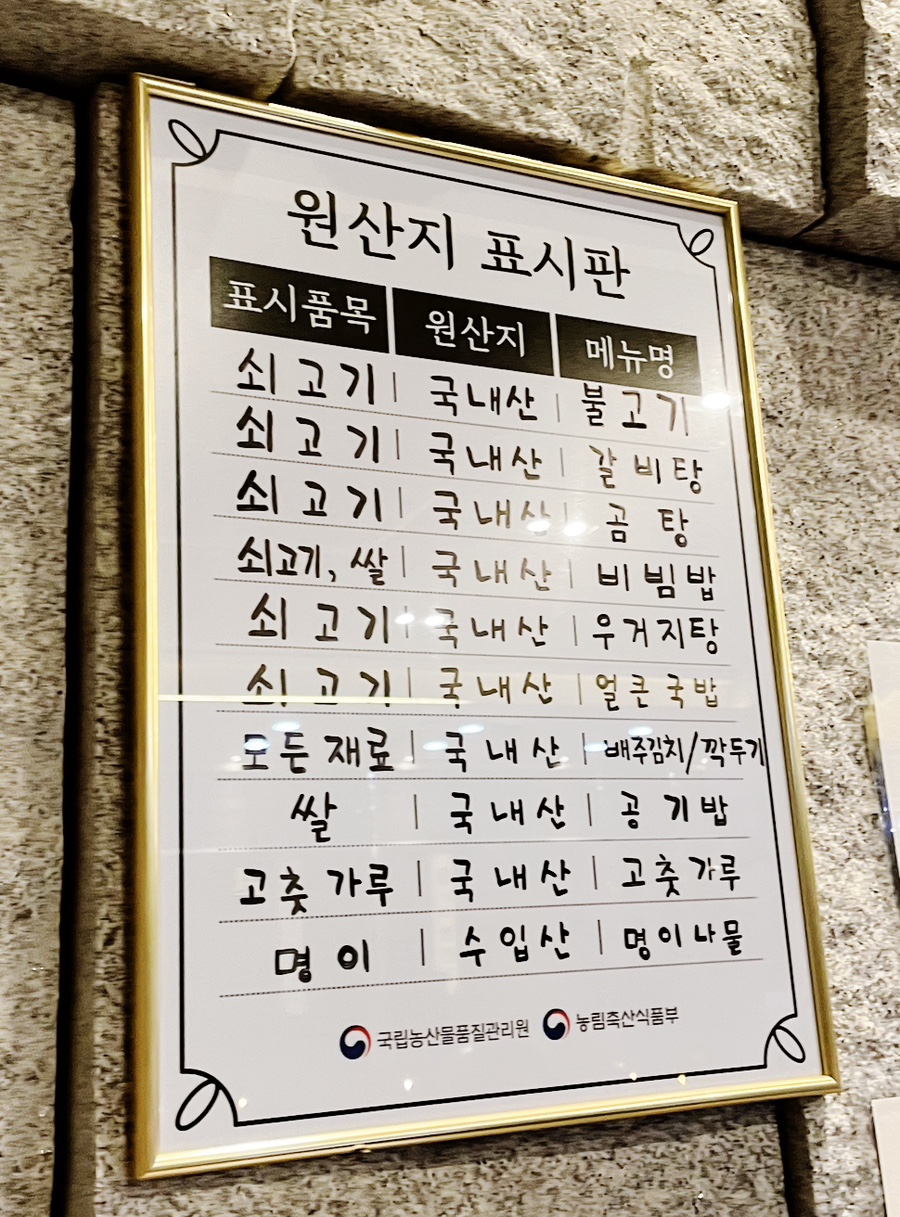 원산지 표시판
표시품목 원산지 메뉴명
쇠고기 | 국내산 | 불고기
쇠고기 | 국내산 | 갈비탕
쇠고기 | 국내산 | 곰탕
쇠고기, 쌀 | 국내산 | 비빔밥
쇠고기 | 국내산 | 우거지탕
쇠고기 | 국내산 | 얼큰국밥
모든재료 | 국내산 | 배추김치/깍두기
쌀 | 국내산 | 공기밥
고춧가루 | 국내산 | 고춧가루
명이 | 수입산 | 명이나물
국립농산물품질관리원 농림축산식품부